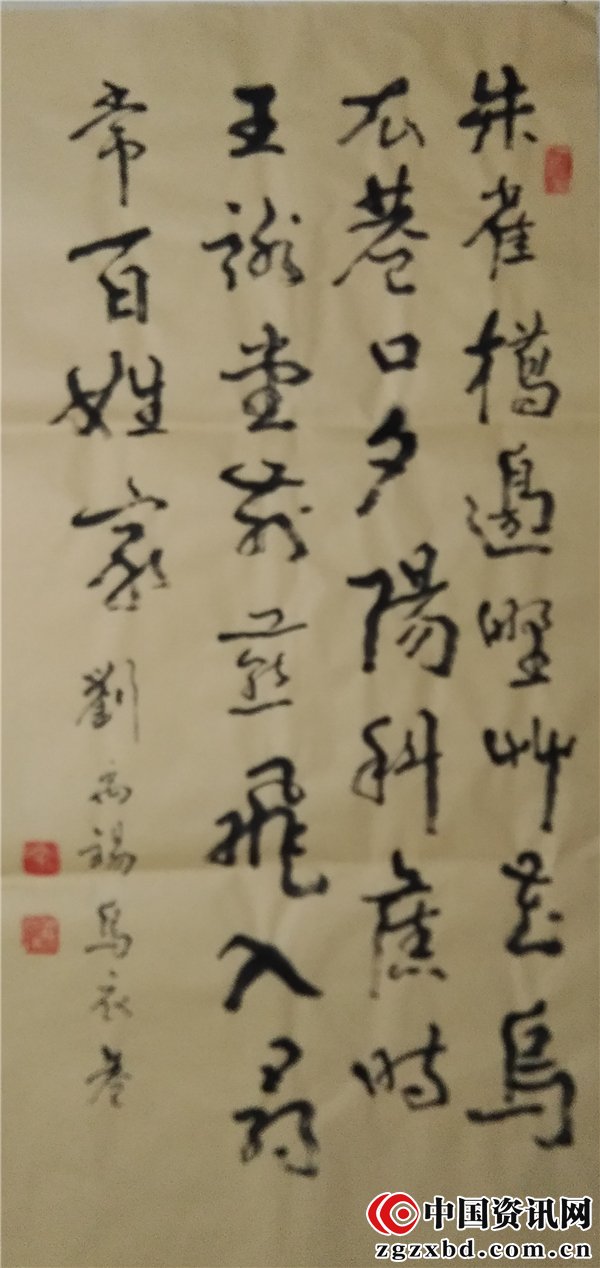 朱雀橋邊野艸花烏
衣巷口夕陽斜舊時
王謝堂前燕飛入尋
常百姓家劉禹錫烏衣巷
中国资讯网
zgzxbd.com.cn